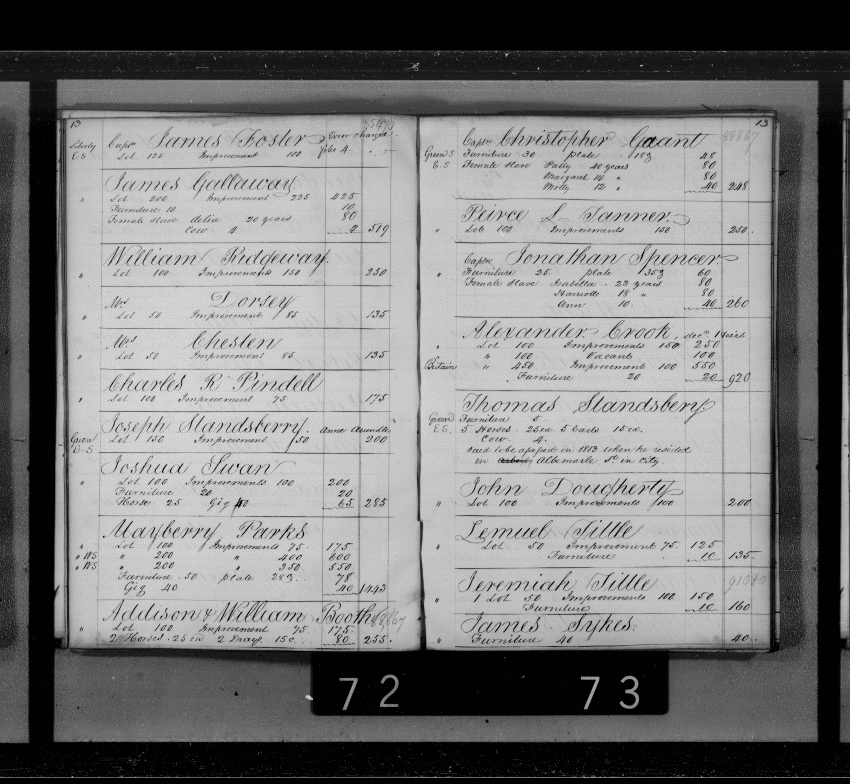 13
Liberty E.S Capt. James Foster Over charged
Lot 125 Improvement 100 folio 4
James Gallaway
" Lot 200 Improvement 225 425
Furniture 10 10
Female slave delia 20 years 80
Cow 4 4 519
William Ridgeway
" Lot 100 Improvements 150 250
Mrs Dorsey
" Lot 50 Improvement 85 135
Mrs Chesten
" Lot 50 Improvement 85 135
Charles R Pindell
" Lot 100 Improvement 75 175
Joseph Standsberry Anne Arundle
Green E.S Lot 150 Improvement 50 200
Joshua Swan
" Lot 100 Improvements 100 200
Furniture 20 20
Horse 25 Gig 40 65 285
Mayberry Parks
" Lot 100 Improvements 75 175
" WS " 200 " 400 600
" WS " 200 " 350 550
Furniture 50 plate 28℥ 78
Gig 40 40 1443
Addison & William Booth 88867
" Lot 100 Improvement 75 175
2 Horses 25 ea 2 Drays 15 e 80 255
13
88867
Capt. Christopher Gaant
Green S E.S Furniture 30 plate 18℥ 48
Female slave Patty 40 years 80
Margaret 14 " 80
Molly 12 " 40 248
Peirce L Tanner
" Lot 100 Improvements 150 250
Capt. Jonathan Spencer
" Furniture 25 plate 35℥ 60
Female slave Isabella 23 years 80
Harriott 18 " 80
Ann 10 40 260
Alexander Crook, decd. Heirs
" Lot 100 Improvements 150 250
" 100 Vacant 100
Britain " 450 Improvement 100 550
Furniture 20 20 920
Thomas Standsbery
Green E.S. Furniture 5
5 Horses 25 ea 5 Carts 15 ea.
Cow 4.
1813 when he resided
in Albemarle St in City.
John Dougherty
" Lot 100 Improvements 100 200
Lemuel Tittle
" Lot 50 Improvement 75 125
Furniture 10 135
Jeremiah Tittle
" Lot 50 Improvements 100 150
Furniture 10 160
James Sykes
" Furniture 40 40
72 73